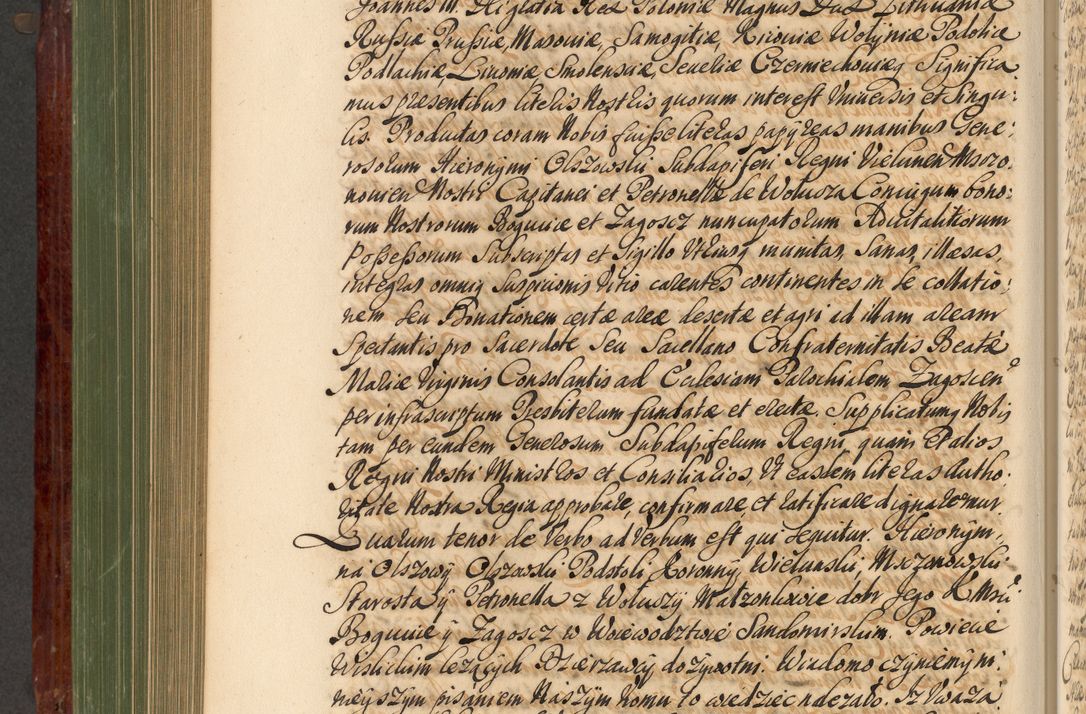 Joannes III. Dei gratia Rex Poloniæ Magnus Dux Lithuaniæ
Russiæ Prussiæ, Masoviæ, Samogitiæ, Kijoviæ Wolÿniæ Podoliæ
Podlachiæ Livoniæ, Smolensciæ, Severiæ Czerniechoviæq Significa
mus præsentibus literis Nostris quorum interest Universis et Singu:
lis. Productas coram Nobis fuisse literas papÿreas manibus Gene:
rosorum Hieronÿmi Olszowski Subdapiferi Regni Vielunen Mszzo
novien Nostri Capitanei et Petronellæ de Wolucza Coniugum bono:
rum Nostrorum Boguciæ et Zagoscz nuncupatorum Advitalitiorum
Possessorum Subscriptas et Sigillo Utriusq munitas, Sanas, illæsas,
integras omniq Suspicionis Vitio carentes continentes in se collatio:
nem seu Donationem certæ areæ desertæ et agri id illam aream
Spectantis pro Sacerdote Seu Sacellano Confraternitatis Beatæ
Mariæ Virginis Consolantis ad Ecclesiam Parochialem Zagoscien
per infrascriptum Presbiterum fundatæ et erectæ. Supplicatumq Nobis
tam per eundem Generosum Subdapiferum Regni, quam et alios
Regni Nostri Ministros et Consiliarios, Ut easdem literas Autho:
ritate Nostra Regia approbare, confirmare, et ratificare dignaremur.
Quarum tenor de Verbo ad Verbum est qui sequitur. Hieronÿm,
na Olszowÿ Olszowski Podstoli Koronnÿ, Wielunski, Mszzonowski
Starosta ÿ Petronella z Woluczÿ Małzonkowie dobr Jego K Msci
Bogucice ÿ Zagoscz w Woiewodztwie Sandomirskim. Powiecie
Wislickim lezących Dzierzawcÿ dozÿwotni. Wiadomo czÿniemÿ ni:
nieÿszÿm pisaniem Naszÿm komu to wiedziec nalezało. Iz Uwaza